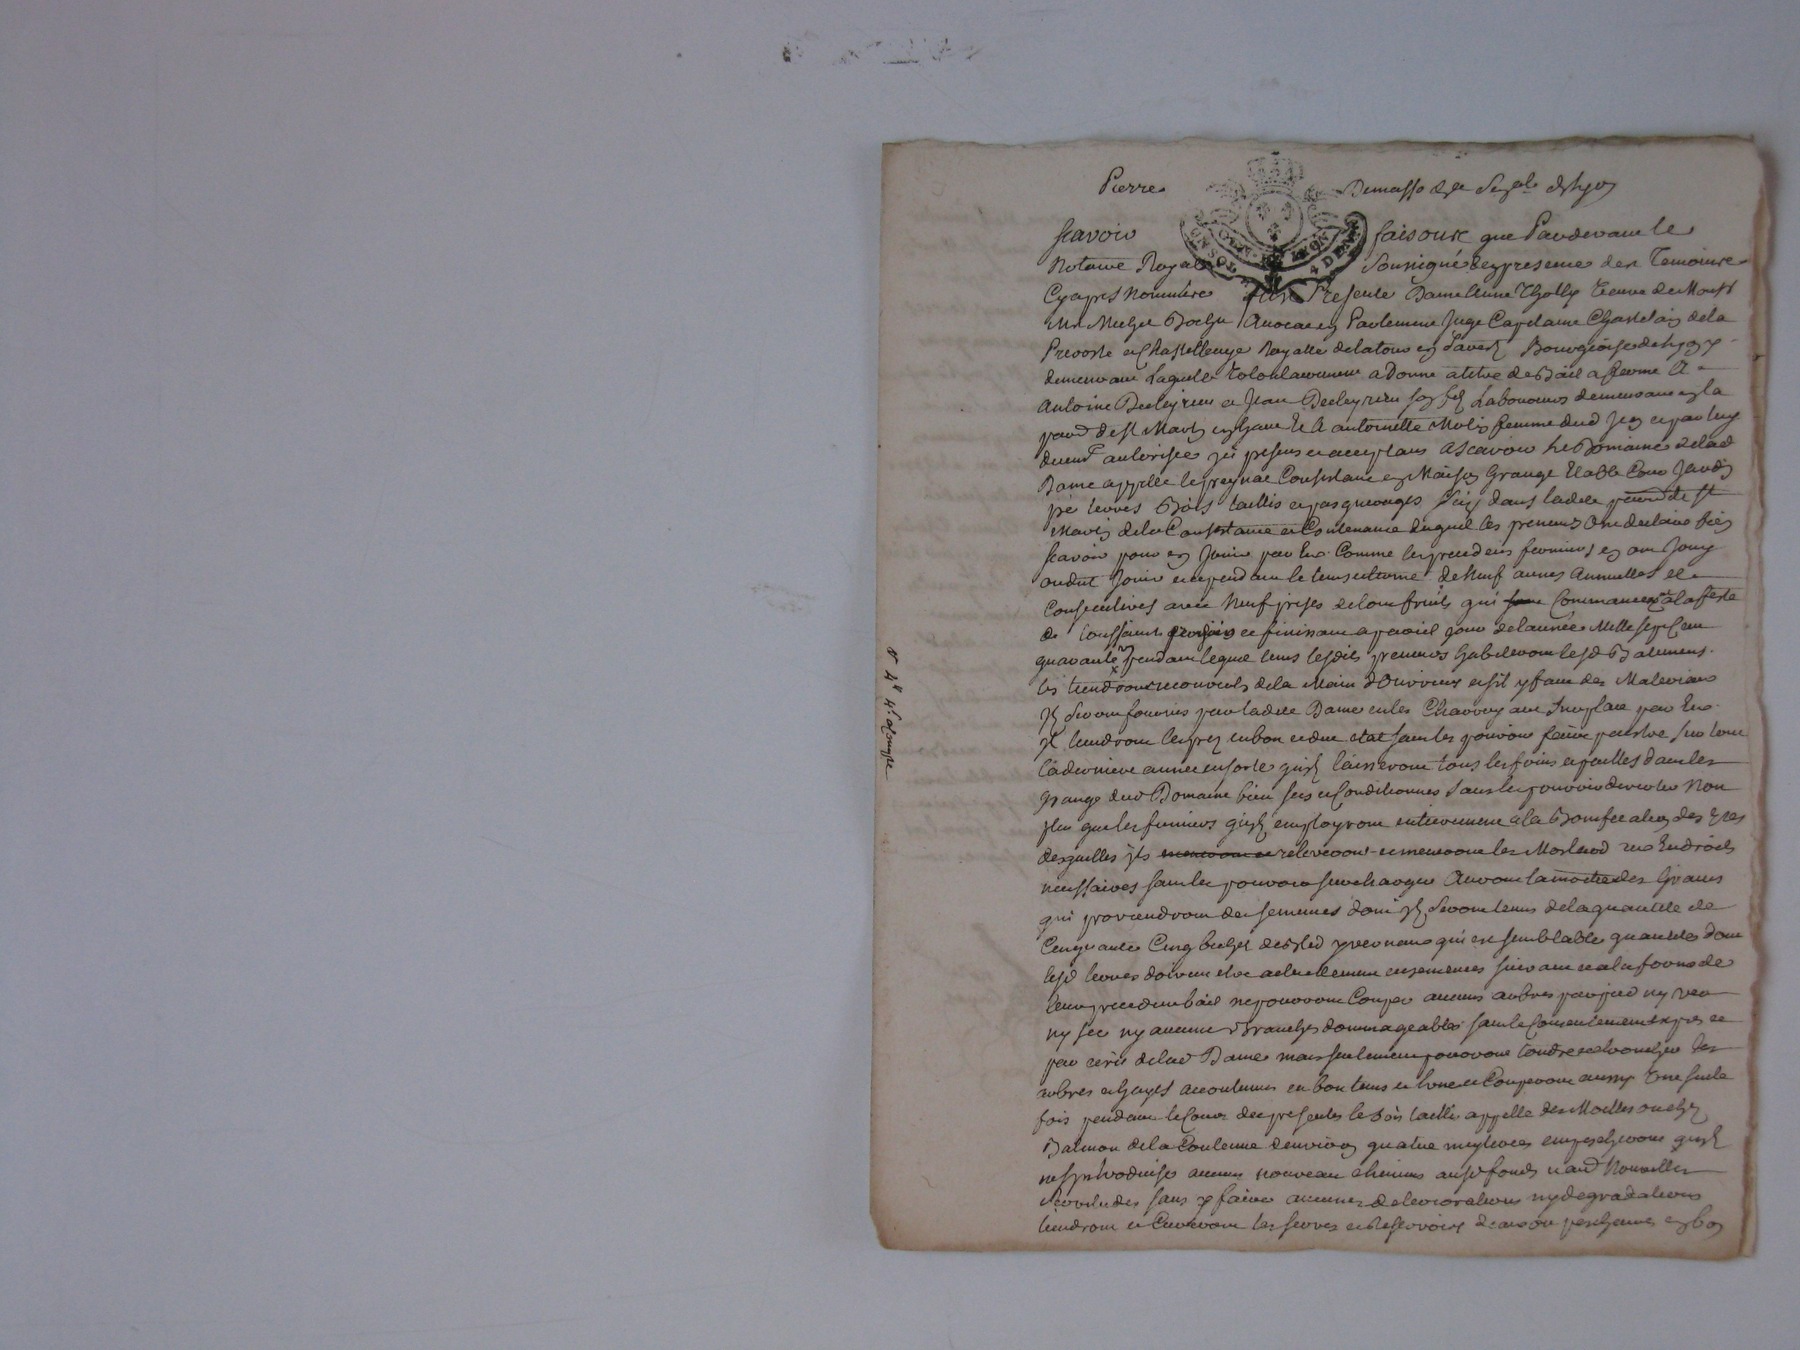 Pierre Demasso
scavoir faisons que Pardevant le
Notaire Royal soussigné et en presence des Temoins
Cy apres Nommés fut Presente Dame Anne Tholly veuve de Monsr
Mre Michel Bochu Avocat en Parlement Juge Capitaine Chastelain de la
Prevosté et Chastellenye Royalle de la tour en Bourgeoise de Lyon y
demeurant Laquelle volontairement a Donné a titre de Bail a ferme A
Antoine Decleyrieu et Jean Decleyrieu son fils Laboureurs demeurants en la
parr de st Martin en haut et A antoinette Molin femme dud Jean et par luy
duemt autorisée icy presens et acceptans Ascavoir Le Domaine de lad
Dame appellé le freynat Consistant en Maison Grange Etable Cour Jardin
pré terres Bois taillis et pasquerages scis dans ladite parr de st
Martin de la Consistance et Contenance duquel les preneurs ont declaré bien
scavoir pour en Jouir par Eux Comme les precedens fermiers en ont Jouy
ou dut Jouir et ce pendant le tems et terme de Neuf années Annuelles et
Consecutives avec Neuf prises de tous fruits qui Commanceront à la feste
de toussaint prochain et finissant a pareil jour de l'année Mille sept Cent
quarante pendant lequel tems lesdits preneurs habiteront lesd Batimens
les tiendront recouverts de la Main d'Ouvriers et s'il y faut des Materiaux
Ils seront fournis par ladite Dame et les Charroy ant sur place par Eux
Ils tiendront les prez en bon et due etat sans les pouvoir faire paistre sur tout
la derniere année en sorte qu'ils laisseront tous les foins et pailles dans les
Grange dud Domaine bien secs et Conditionnés sans les pouvoir divertir Non
plus que les fumiers qu'ils employront entierement a la Bonification des
desquelles ils releveront et meneront les Morterod aux Endroits
necessaires sans les pouvoir surcharger Auront la moitié des Grains
qui proviendront des semences dont ils seront tenus de la quantité de
Cinquante Cinq bichet de bled yvernaux qui est semblable quantité dont
lesd terres doivent etre actuellement ensemencés suivant et a la forme de
leur precedent bail ne pourront Couper aucuns arbres par pied ny vert
ny sec ny aucune Branches dommageables sans le Consentement expres et
par ecrit de lad Dame mais seulement pourront tondre et ebrancher les
arbres et hayes accoutumés en bon tems et lune et Couperont aussy Une seule
fois pendant le Cours des presentes le Bois taillis appellé des Moilles ou chez
Balmon de la Contenue d'environ quatre meyterées empescheront qu'il
ne s'introduise aucuns nouveau chemins auxd fonds n aud Nouvelles
servitudes sans y faire aucunes deteriorations ny degradations
tiendront et Cureront les serves et reservoirs d'eau ou pescheries en bon